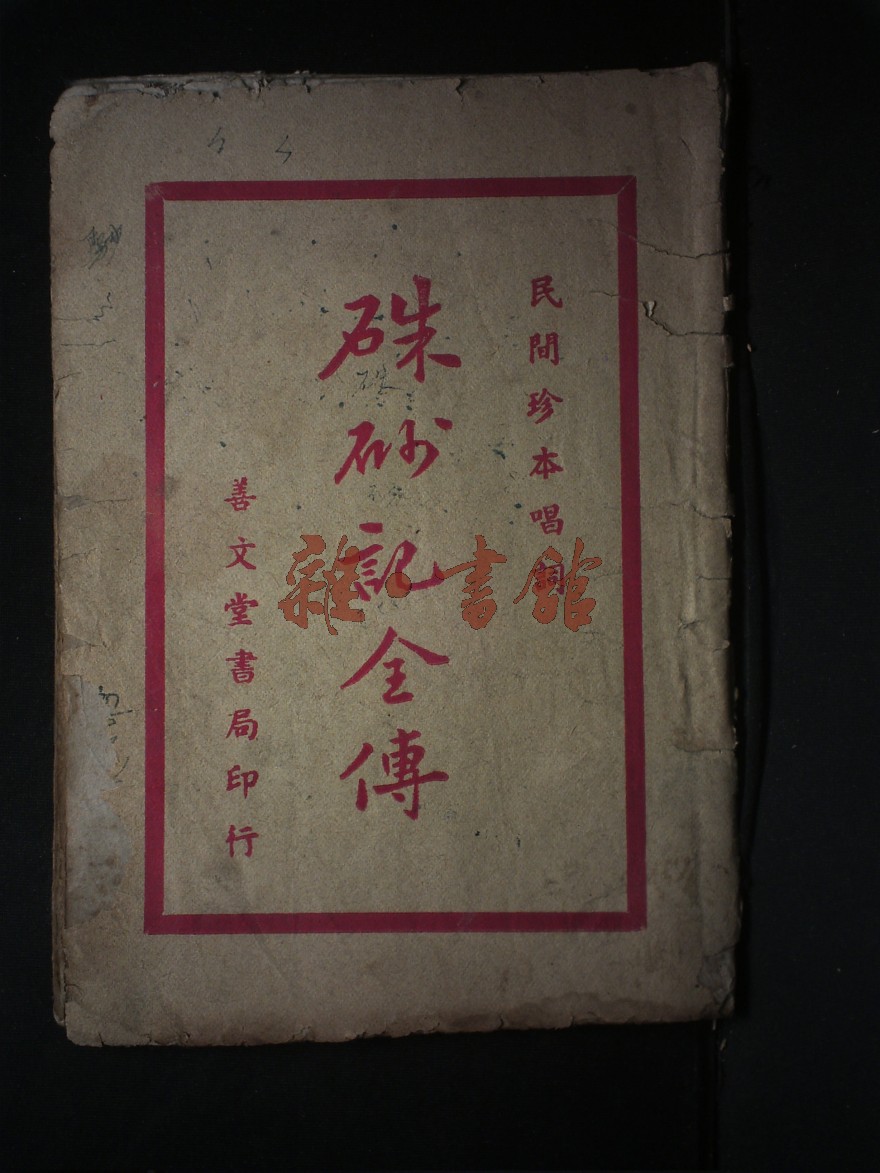 民間珍本唱詞
硃砂記全傳
善文堂書局印行
雜·書館